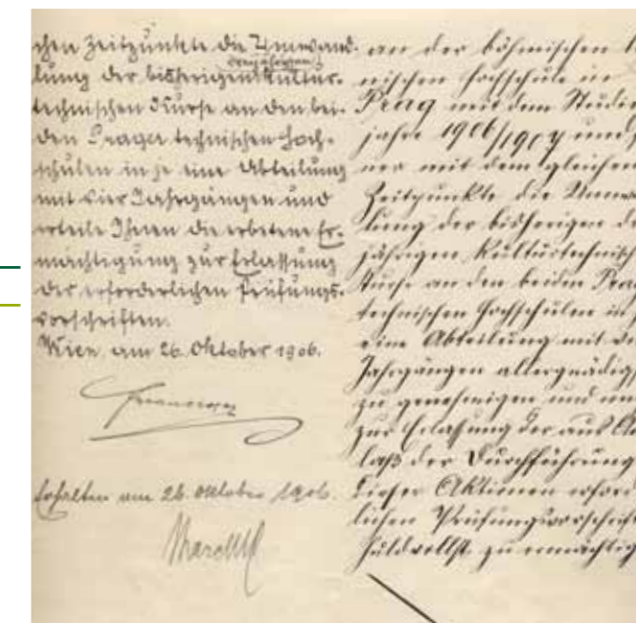 chen Zeitpunkte die Umwand-
dreijährigen
lung der bisherigen kultur-
technischen Kurse an den bei-
den Prager technischen Hoch-
schulen in je eine Abteilung
mit vier Jahrgängen und
erteile Ihnen die erbetene Er-
mächtigung zur Erlassung
der erforderlichen Prüfungs-
vorschriften.
Wien, am 26. Oktober 1906.
Erhalten am 26. Oktober 1906.
Marchet
an der böhmischen
nischen Hochschule in
Prag mit dem Studien
jahre 1906/1907 und
ner mit dem gleichen
Zeitpunkte die Umwa
lung der bisherigen
jährigen kulturtechnisch
Kurse an den beiden Pra
technischen Hochschulen in
eine Abteilung mit
Jahrgängen allergnädigst
zu genehmigen und
zur Erlassung der aus
laß der Durchführung
dieser Aktionen erford
lichen Prüfungsvorschrift
huldvollst zu ermächtig